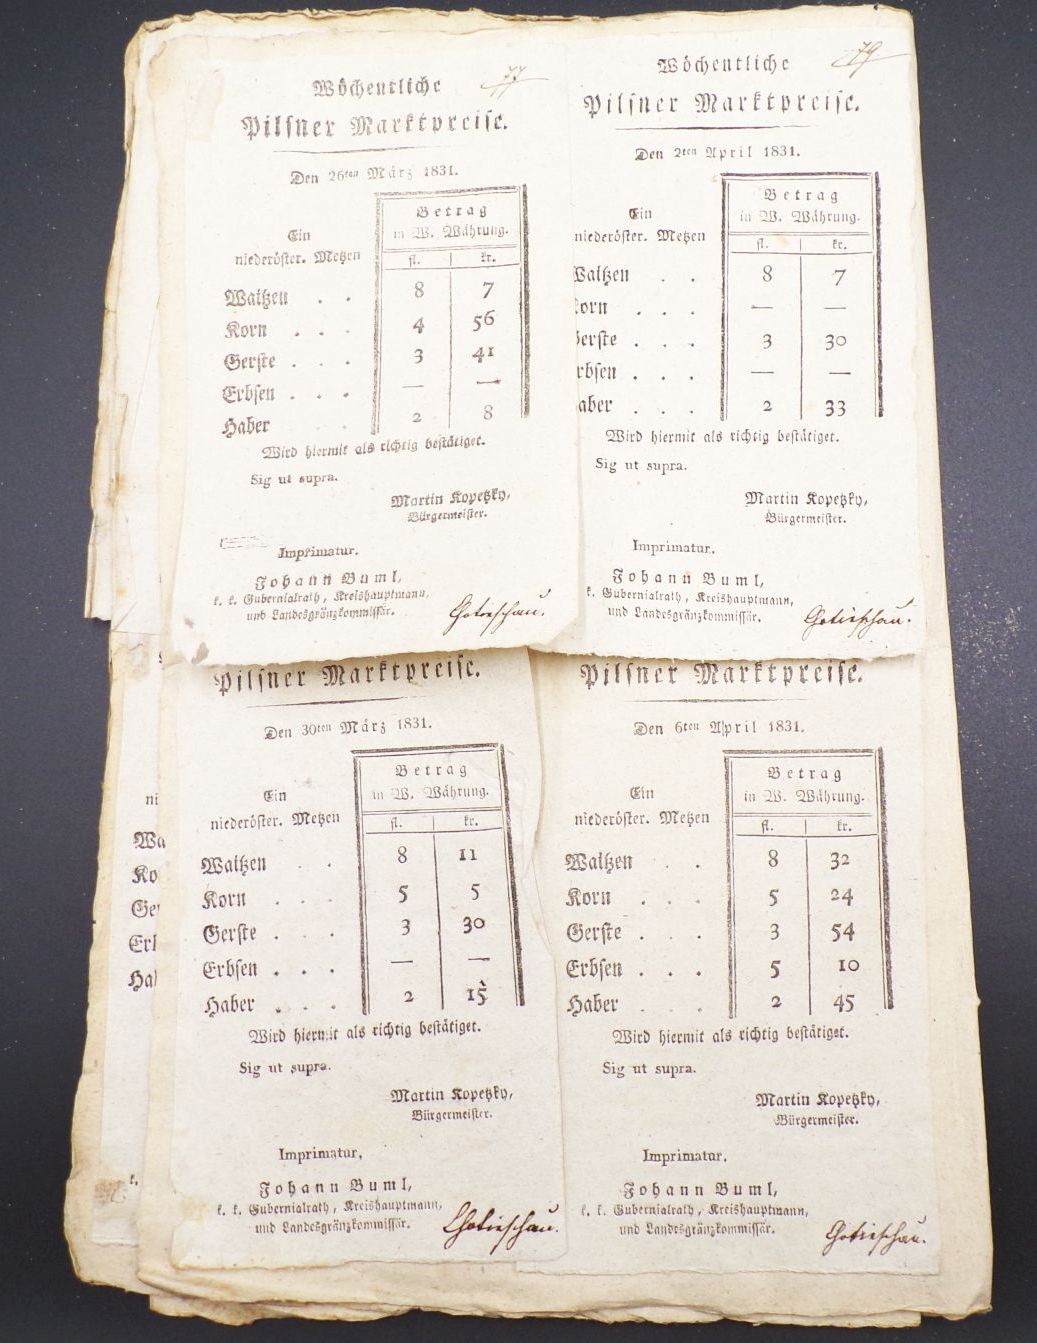 77
Wöchentliche
Pilsner Marktpreise.
Den 26ten März 1831.
Betrag
in W. Währung.
Ein
niederöster. Metzen
fl. | kr.
Waitzen . . 8 7
Korn . . . 4 56
Gerste . . . 3 41
Erbsen . . . — —
Haber 2 8
Wird hiermit als richtig bestätiget.
Sig ut supra.
Martin Kopetzky,
Bürgermeister.
Imprimatur.
Johann Buml,
k. k. Gubernialrath, Kreishauptmann,
und Landesgränzkommissär.
79
Wöchentliche
Pilsner Marktpreise.
Den 2ten April 1831.
Betrag
in W. Währung.
Ein
niederöster. Metzen
fl. | kr.
Waitzen . . 8 7
orn . . . — —
erste . . . 3 30
rbsen . . . — —
aber . . . 2 33
Wird hiermit als richtig bestätiget.
Sig ut supra.
Martin Kopetzky,
Bürgermeister.
Imprimatur.
Johann Buml,
k. Gubernialrath, Kreishauptmann,
und Landesgränzkommissär.
Pilsner Marktpreise.
Den 30ten März 1831.
Betrag
in W. Währung.
Ein
niederöster. Metzen
fl. | kr.
Waitzen . . 8 11
Korn . . . 5 5
Gerste . . . 3 30
Erbsen . . . — —
Haber . . . 2 15
Wird hiermit als richtig bestätiget.
Sig ut supra.
Martin Kopetzky,
Bürgermeister.
Imprimatur.
Johann Buml,
k. k. Gubernialrath, Kreishauptmann,
und Landesgränzkommissär.
Pilsner Marktpreise.
Den 6ten April 1831.
Betrag
in W. Währung.
Ein
niederöster. Metzen
fl. | kr.
Waitzen . . 8 32
Korn . . . 5 24
Gerste . . . 3 54
Erbsen . . . 5 10
Haber . . . 2 45
Wird hiermit als richtig bestätiget.
Sig ut supra.
Martin Kopetzky,
Bürgermeister.
Imprimatur.
Johann Buml,
k. k. Gubernialrath, Kreishauptmann,
und Landesgränzkommissär.
ni
Wa
Ko
Ge
Erl
Ha
k.